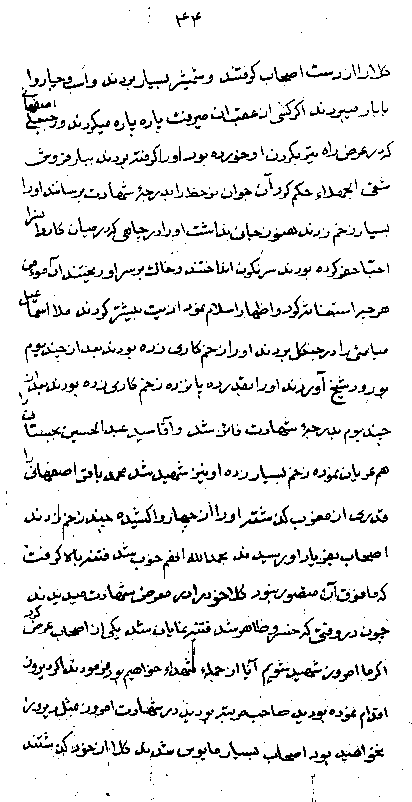 ۴۴
کلا را از دست اصحاب گرفتند و شمشیر بسیار بودند و اسب و چیز را
با بار میبردند اگر کسی از عقب ایشان میرفت پاره پاره میکردند و اصفهانی
که در عرض راه تیر بگردن او خورده بود او را گرفته بودند
شقی الحمله حکم کرد آن جوان را بدرجهٔ شهادت برسانند او را
بسیار زخم زدند هنوز جان داشت او را در چاهی که در میان کاروانسرا
احتیاط کرده بودند سرنگون انداختند و خاک بر سر او ریختند آن
هر چه استغاثه کرد و اظهار اسلام نمود اذیت بیشتر کردند ملا اسماعیل
میامئی را در جنگل بودند او را زخم کاری زده بودند بعد از چند یوم
بورود شیخ آوردند او را بقدر ده پانزده زخم کاری زده بودند بعد از
چند یوم بدرجهٔ شهادت فائز شد و آقا سید عبدالحسین
هم عریان نموده زخم بسیار زده او نیز شهید شد محمد باقر اصفهانی را
قدری از مغرب که گذشته او را از چهاروا کشیده چند زخم زدند
اصحاب بفریاد او رسیدند بحمدالله آنهم خوب شد فتنه بالا گرفت
که مافوق آن متصور نبود کلا خود را در معرض شهادت میدیدند
چون در وقتی که خسرو ظاهر شد فتنه نمایان شد یکی از اصحاب عرض کرد
اگر ما امروز شهید شویم آیا از جمله شهداء خواهیم بود فرمودند اگر دیروز
اقدام نموده بودید صاحب مرتبه بودید در شهادت امروز مثل دیروز
نخواهید بود اصحاب بسیار مأیوس شدند کلا از خود گذشتند